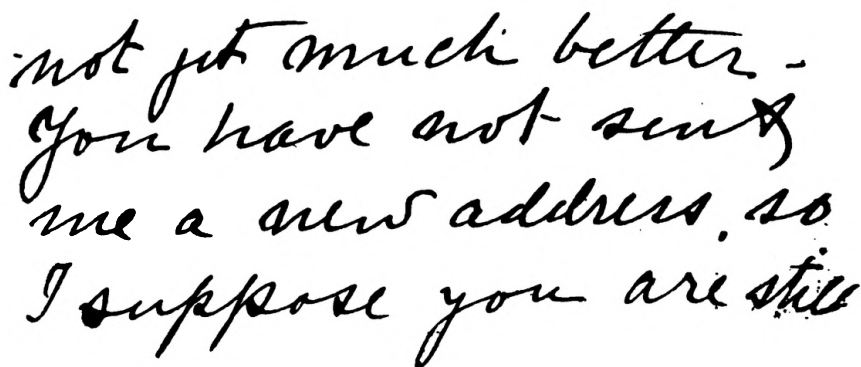 not yet much better -
You have not sent
me a new address, so
I suppose you are still